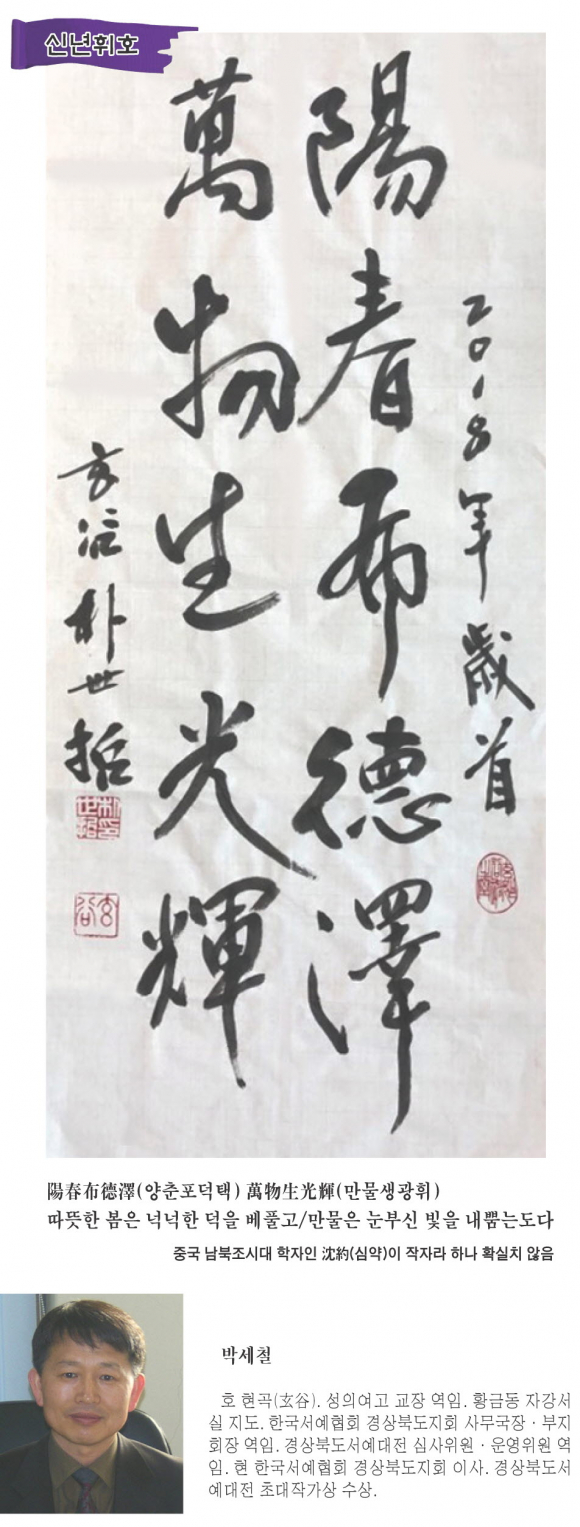 신년휘호
2018年歲首
陽春布德澤
萬物生光輝
玄谷朴世哲
陽春布德澤(양춘포덕택) 萬物生光輝(만물생광휘)
따뜻한 봄은 넉넉한 덕을 베풀고/만물은 눈부신 빛을 내뿜는도다
중국 남북조시대 학자인 沈約(심약)이 작자라 하나 확실치 않음
박세철
호 현곡(玄谷). 성의여고 교장 역임. 황금동 자강서
실 지도. 한국서예협회 경상북도지회 사무국장 · 부지
회장 역임. 경상북도서예대전 심사위원 · 운영위원 역
임. 현 한국서예협회 경상북도지회 이사. 경상북도서
예대전 초대작가상 수상.